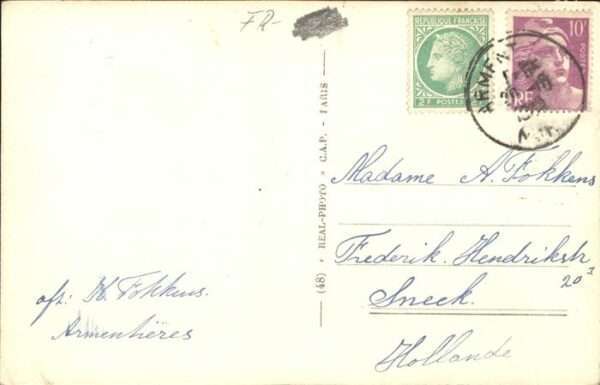 FR-
REPUBLIQUE FRANCAISE
2F POSTES
10F
POSTES
RF
(48) • REAL-PHOTO • C.A.P. - PARIS
Madame A. Fokkens
Frederik. Hendrikstr
20
Sneek.
Hollande
aft: H. Fokkens.
Armentières